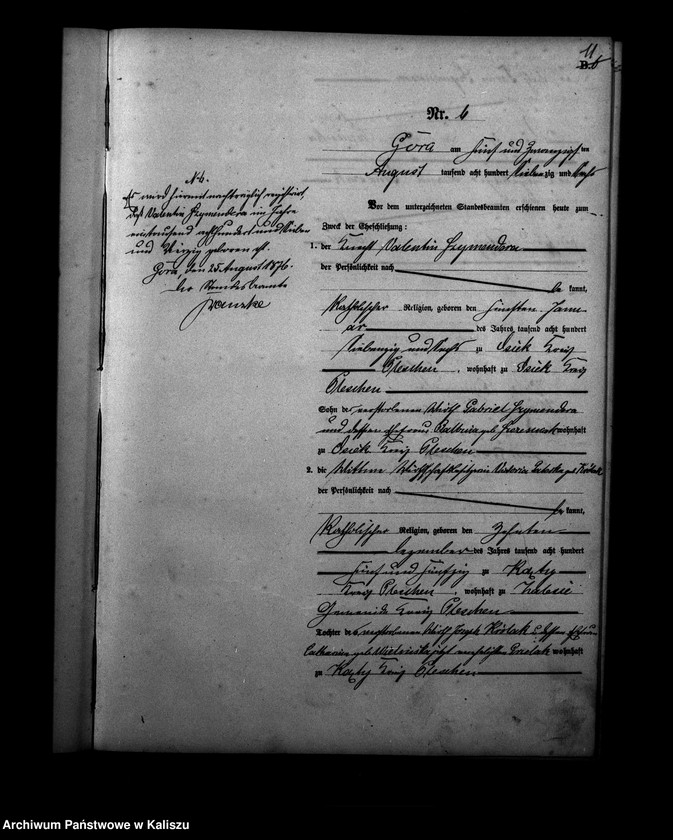 11
B.
Nr. 6
Góra am fünf und zwanzigsten
August tausend acht hundert siebenzig und sechs
Vor dem unterzeichneten Standesbeamten erschienen heute zum
Zweck der Eheschließung:
1. der Knecht Valentin Szymendera
der Persönlichkeit nach
be kannt,
katholischer Religion, geboren den fünften Janu-
ar des Jahres tausend acht hundert
siebenzig und sechs zu Osiek Kreis
Pleschen, wohnhaft zu Osiek Kreis
Pleschen
Sohn des verstorbenen Wirth Gabriel Szymendera
und dessen Ehefrau Balbina geb. wohnhaft
zu Osiek Kreis Pleschen
2. die Wittwe geb.
der Persönlichkeit nach
be kannt,
katholischer Religion, geboren den zehnten
Dezember des Jahres tausend acht hundert
fünf und fünfzig zu Kąty
Kreis Pleschen, wohnhaft zu Zalesie
Gemeinde Kreis Pleschen
Tochter des verstorbenen Wirth Joseph u. dessen Ehefrau
Catharina geb. jetzt wohnhaft
zu Kąty Kreis Pleschen
N. 6.
Es wird hiermit nachträglich registrirt,
daß Valentin Szymendera im Jahre
eintausend achthundert und sieben
und vierzig geboren ist.
Góra, den 25 August 1876.
Der Standesbeamte
Archiwum Państwowe w Kaliszu